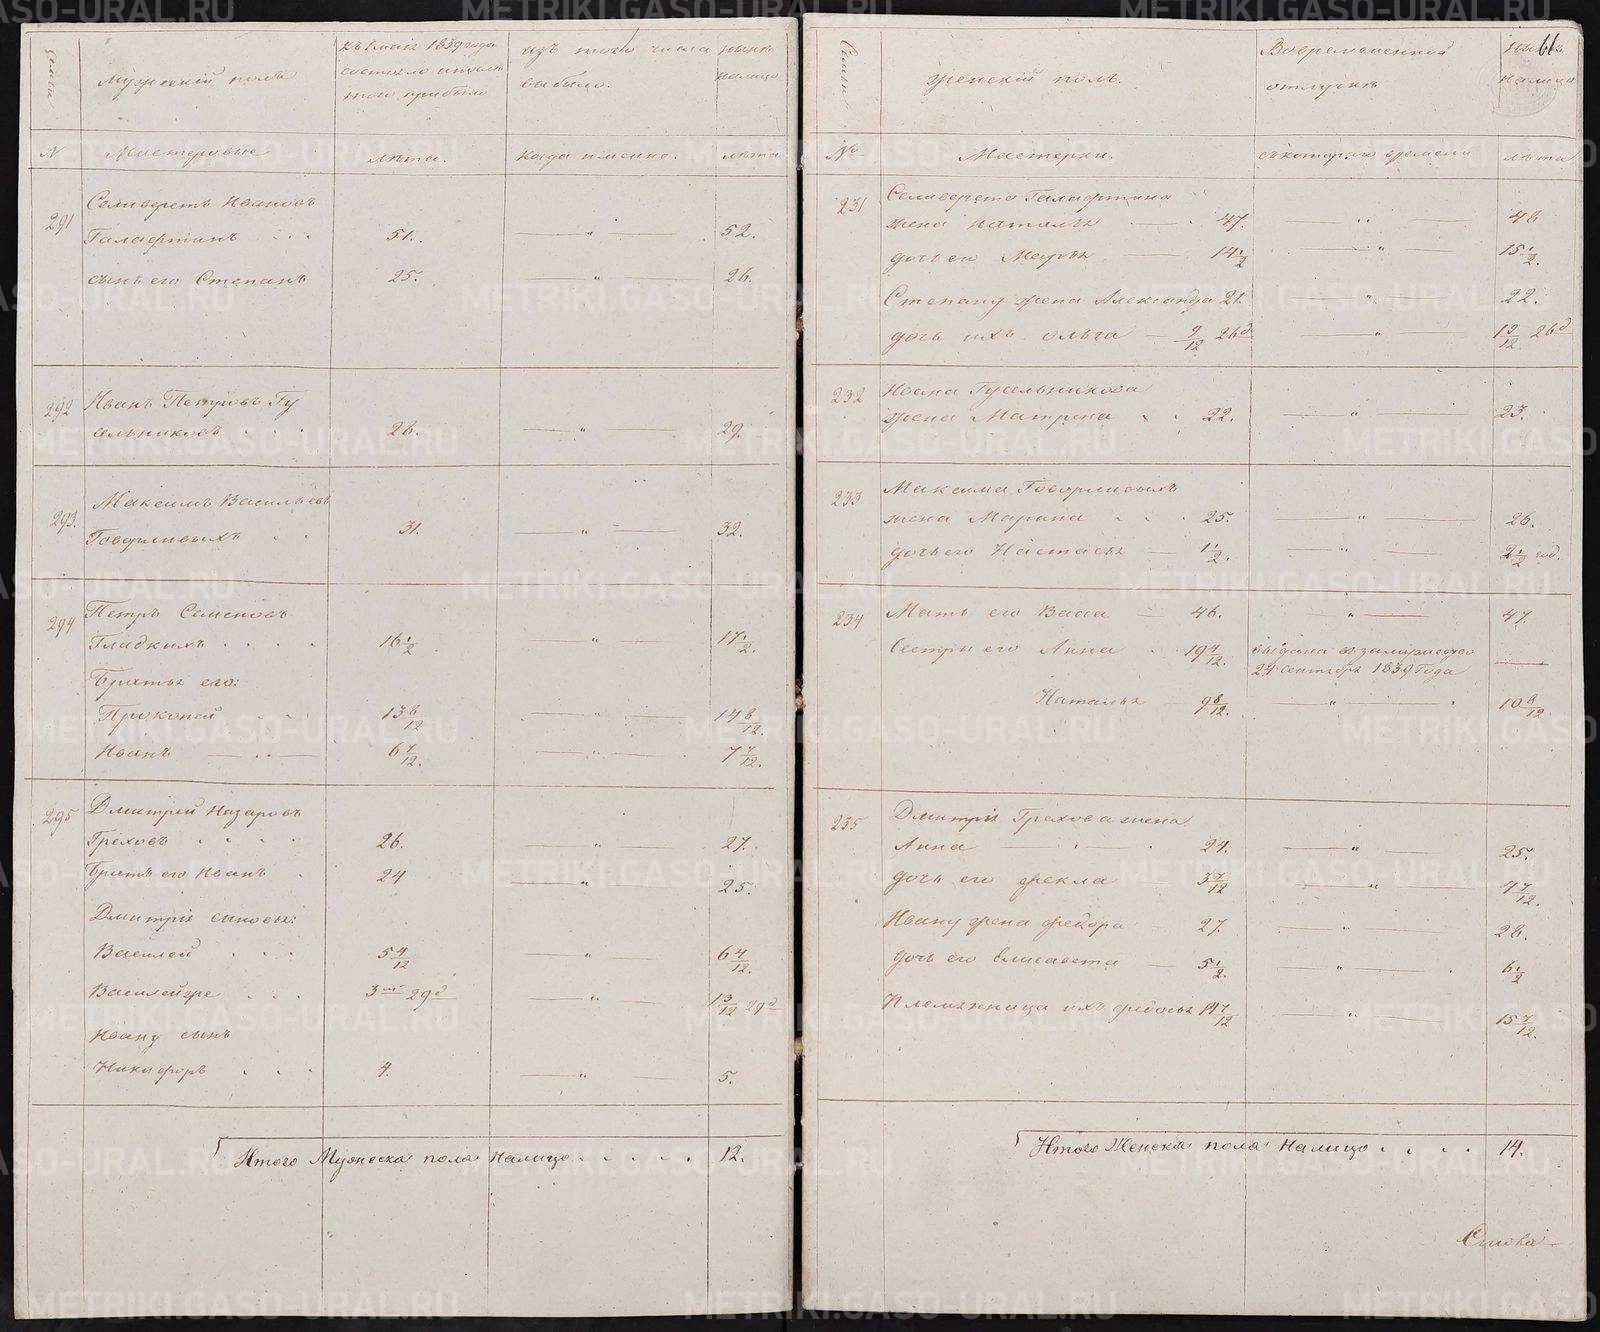 Семьи
Мужескій полъ
къ 1 маія 1839 года
состояло и после
того прибыло
изъ того числа
выбыло.
нынѣ
налицо
№
Мастеровые
лѣта.
когда именно.
лѣта
291
Селиверстъ Ивановъ
Галафтинъ . . . 51. — " — 52.
сынъ его Степанъ 25. — " — 26.
292
Иванъ Петровъ Гу
сельниковъ . . . 28. — " — 29.
293.
Максимъ Васильевъ
Говорливыхъ . . 31. — " — 32.
294
Петръ Семеновъ
Гладкихъ . . . . 16 1/2 — " — 17 1/2.
Братья его:
Прокопей . . . 13 8/12 — " — 14 8/12.
Иванъ — . . — 6 7/12. — " — 7 7/12.
295
Дмитрей Назаровъ
Греховъ . . . . 26. — " — 27.
Братъ его Иванъ . 24 — " — 25.
Дмитрія сыновья:
Василей . . . 5 4/12 — " — 6 4/12.
Василейже . . . 3 м 29 д — " — 1 3/12 29 д
Ивану сынъ
Никифоръ . . . 4. — " — 5.
Итого Мужеска пола налицо . . . . . 12.
61
Семьи
женскій полъ.
Вовремянной
отлучкѣ
ныне
налицо
№
Мастерки.
съкотораго времени
лѣта
231
Селиверста Галафтина
жена Наталья — 47. — " — 48
дочь его Марья — 14 1/2 — " — 15 1/2.
Степану жена Александра 21. — " — 22.
дочь ихъ Ольга — 2/12 26 д — " — 1 2/12 26 д
232
Ивана Гусельникова
жена Матрена . . 22. — " — 23.
233
Максима Говорливыхъ
жена Марина . . . 25. — " — 26.
дочь его Настасья — 1 1/2. — " — 2 1/2 год.
234
Мать его Васса — 46. " — 47.
Сестры его Анна . 19 4/12. выдана въ замужество
24 сентября 1839 года —
Наталья 9 8/12. — " — 10 8/12
235
Дмитрія Грехова жена
Анна — " — . 24. — " — 25.
дочь его Фекла 3 7/12 — " — 4 7/12.
Ивану жена Федора — 27. — " — 28.
дочь его Елисавета — 5 1/2. — " — 6 1/2
Племянница ихъ Федосья 14 7/12 — " — 15 7/12.
Итого Женска пола налицо . . . . 14.
METRIKI.GASO-URAL.RU